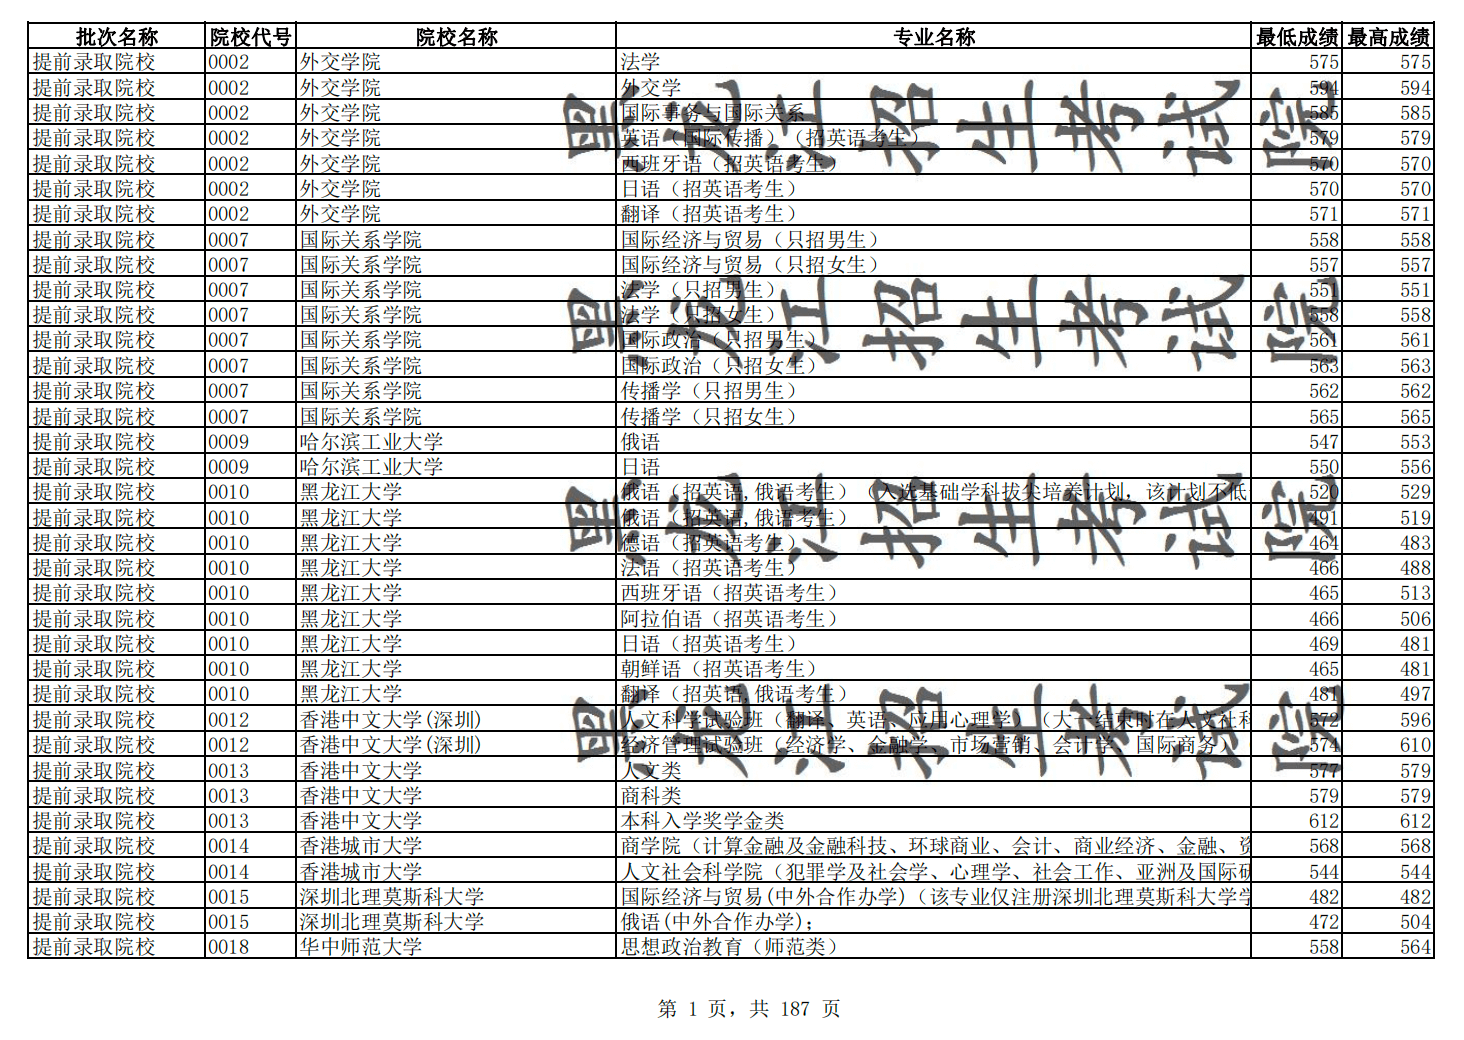 批次名称 院校代号 院校名称 专业名称 最低成绩 最高成绩
提前录取院校 0002 外交学院 法学 575 575
提前录取院校 0002 外交学院 外交学 594 594
提前录取院校 0002 外交学院 国际事务与国际关系 585 585
提前录取院校 0002 外交学院 英语（国际传播）（招英语考生） 579 579
提前录取院校 0002 外交学院 西班牙语（招英语考生） 570 570
提前录取院校 0002 外交学院 日语（招英语考生） 570 570
提前录取院校 0002 外交学院 翻译（招英语考生） 571 571
提前录取院校 0007 国际关系学院 国际经济与贸易（只招男生） 558 558
提前录取院校 0007 国际关系学院 国际经济与贸易（只招女生） 557 557
提前录取院校 0007 国际关系学院 法学（只招男生） 551 551
提前录取院校 0007 国际关系学院 法学（只招女生） 558 558
提前录取院校 0007 国际关系学院 国际政治（只招男生） 561 561
提前录取院校 0007 国际关系学院 国际政治（只招女生） 563 563
提前录取院校 0007 国际关系学院 传播学（只招男生） 562 562
提前录取院校 0007 国际关系学院 传播学（只招女生） 565 565
提前录取院校 0009 哈尔滨工业大学 俄语 547 553
提前录取院校 0009 哈尔滨工业大学 日语 550 556
提前录取院校 0010 黑龙江大学 俄语（招英语,俄语考生）（入选基础学科拔尖培养计划，该计划不低 520 529
提前录取院校 0010 黑龙江大学 俄语（招英语,俄语考生） 491 519
提前录取院校 0010 黑龙江大学 德语（招英语考生） 464 483
提前录取院校 0010 黑龙江大学 法语（招英语考生） 466 488
提前录取院校 0010 黑龙江大学 西班牙语（招英语考生） 465 513
提前录取院校 0010 黑龙江大学 阿拉伯语（招英语考生） 466 506
提前录取院校 0010 黑龙江大学 日语（招英语考生） 469 481
提前录取院校 0010 黑龙江大学 朝鲜语（招英语考生） 465 481
提前录取院校 0010 黑龙江大学 翻译（招英语,俄语考生） 481 497
提前录取院校 0012 香港中文大学(深圳) 人文科学试验班（翻译、英语、应用心理学）（大一结束时在人文社科 572 596
提前录取院校 0012 香港中文大学(深圳) 经济管理试验班（经济学、金融学、市场营销、会计学、国际商务） 574 610
提前录取院校 0013 香港中文大学 人文类 577 579
提前录取院校 0013 香港中文大学 商科类 579 579
提前录取院校 0013 香港中文大学 本科入学奖学金类 612 612
提前录取院校 0014 香港城市大学 商学院（计算金融及金融科技、环球商业、会计、商业经济、金融、资 568 568
提前录取院校 0014 香港城市大学 人文社会科学院（犯罪学及社会学、心理学、社会工作、亚洲及国际研 544 544
提前录取院校 0015 深圳北理莫斯科大学 国际经济与贸易(中外合作办学)（该专业仅注册深圳北理莫斯科大学学 482 482
提前录取院校 0015 深圳北理莫斯科大学 俄语(中外合作办学); 472 504
提前录取院校 0018 华中师范大学 思想政治教育（师范类） 558 564
黑龙江招生考试院
黑龙江招生考试院
黑龙江招生考试院
黑龙江招生考试院
第 1 页，共 187 页